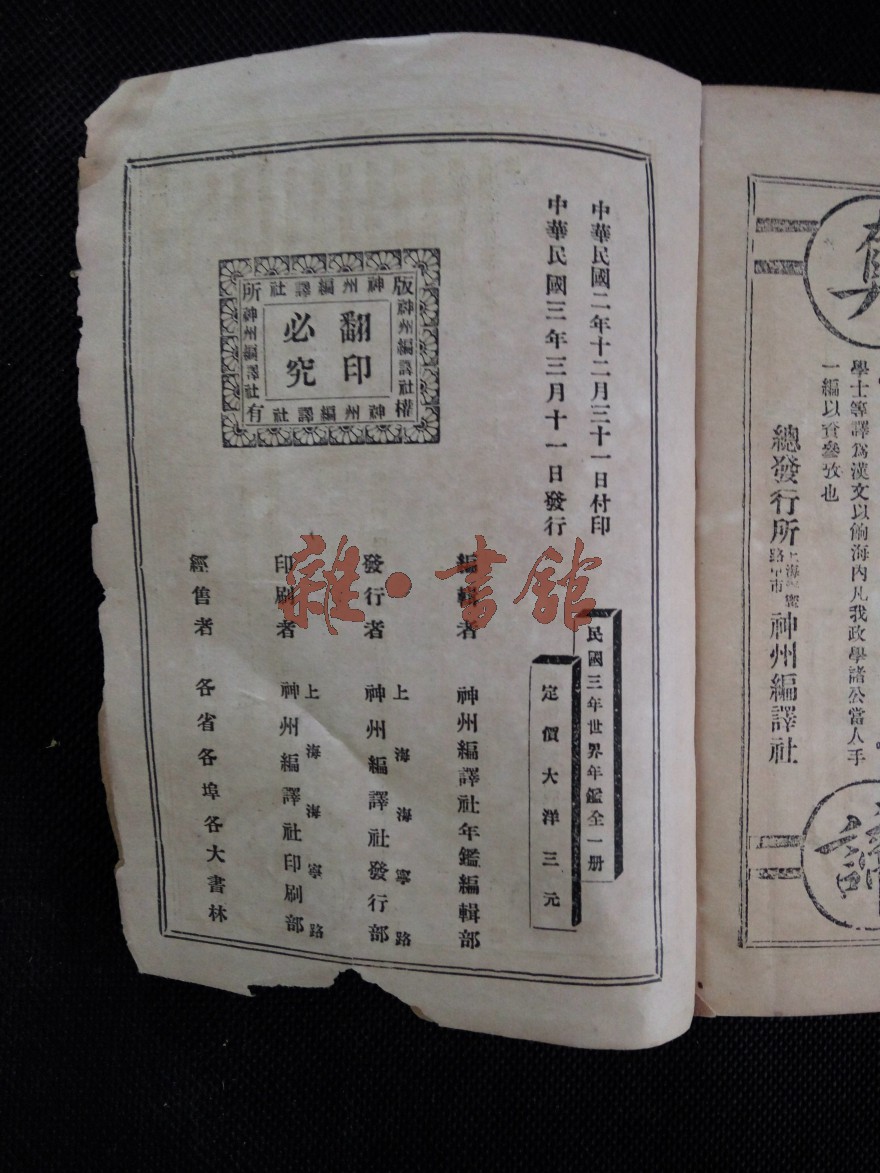 中華民國二年十二月三十一日付印
中華民國三年三月十一日發行
民國三年世界年鑑全一册
定價大洋三元
版權所有
神州編譯社
神州編譯社
神州編譯社
神州編譯社
翻印
必究
編輯者 神州編譯社年鑑編輯部
上海海寧路
發行者 神州編譯社發行部
上海海寧路
印刷者 神州編譯社印刷部
經售者 各省各埠各大書林
雜·書館
學士等譯爲漢文以餉海内凡我政學諸公當人手
一編以資參攷也
總發行所
神州編譯社